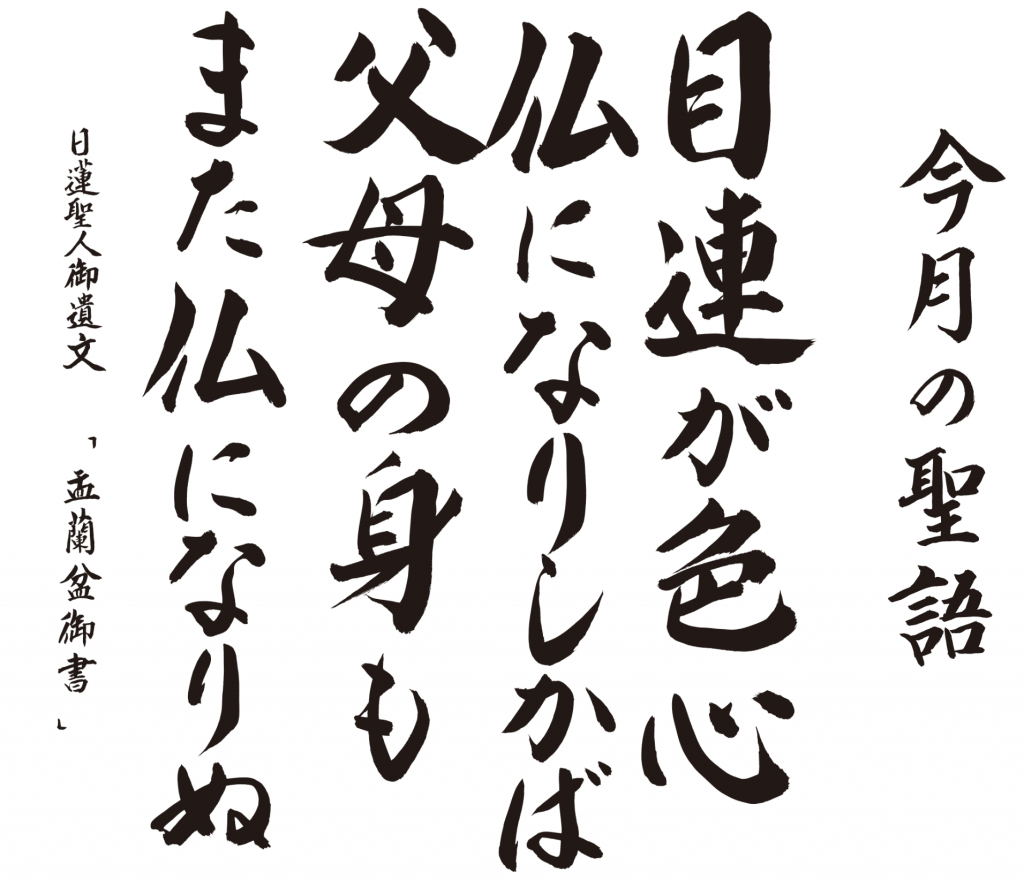 今月の聖語
目連が色心
仏になりしかば
父母の身も
また仏になりぬ
日蓮聖人御遺文「盂蘭盆御書」